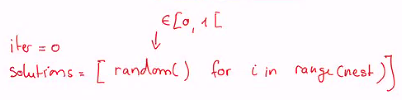 ∈[0, 1[
iter = 0
solutions = [ random() for i in range(nest)]